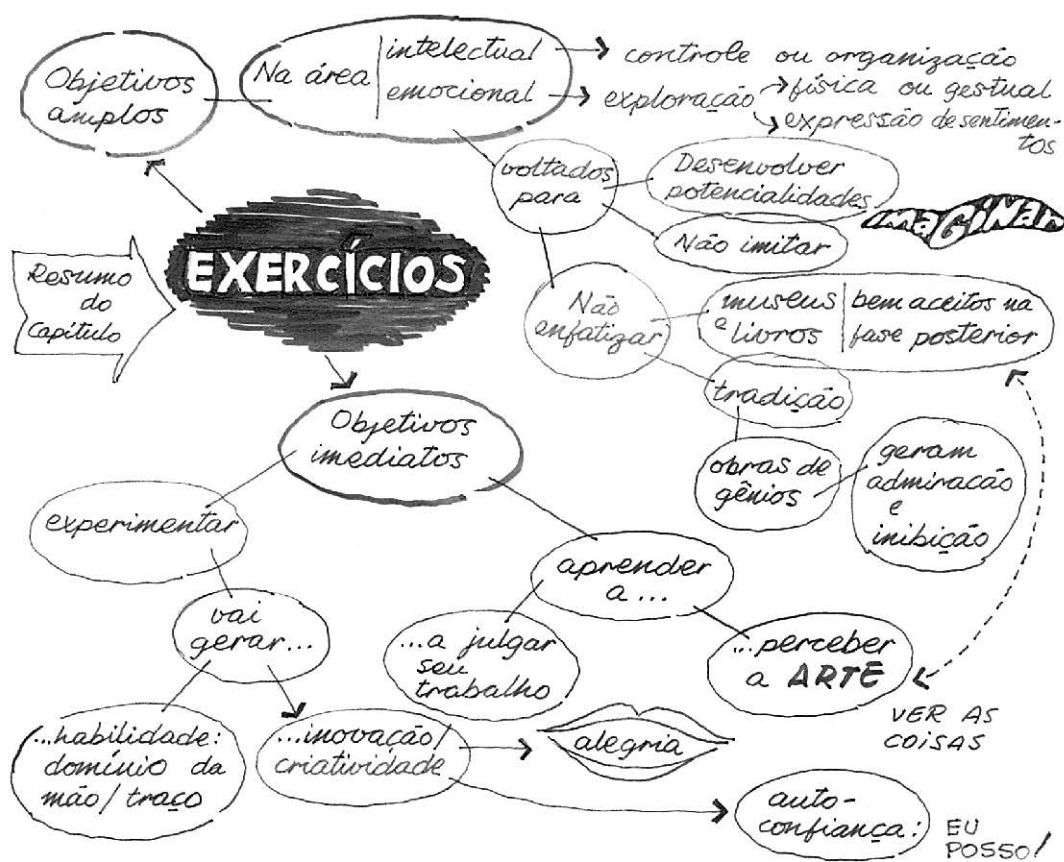 Objetivos
amplos
Na área
intelectual
emocional
controle ou organização
exploração
física ou gestual
expressão de sentimen-
tos
voltados
para
Desenvolver
potencialidades
Não imitar
imaginar
Resumo
do
Capítulo
EXERCÍCIOS
Não
enfatizar
museus
e
livros
bem aceitos na
fase posterior
tradição
obras de
gênios
geram
admiracão
e
inibição
Objetivos
imediatos
experimentar
vai
gerar...
...habilidade:
domínio da
mão/traço
...inovação/
criatividade
alegria
auto-
confiança:
EU
POSSO!
aprender
a...
...a julgar
seu
trabalho
...perceber
a ARTE
VER AS
COISAS